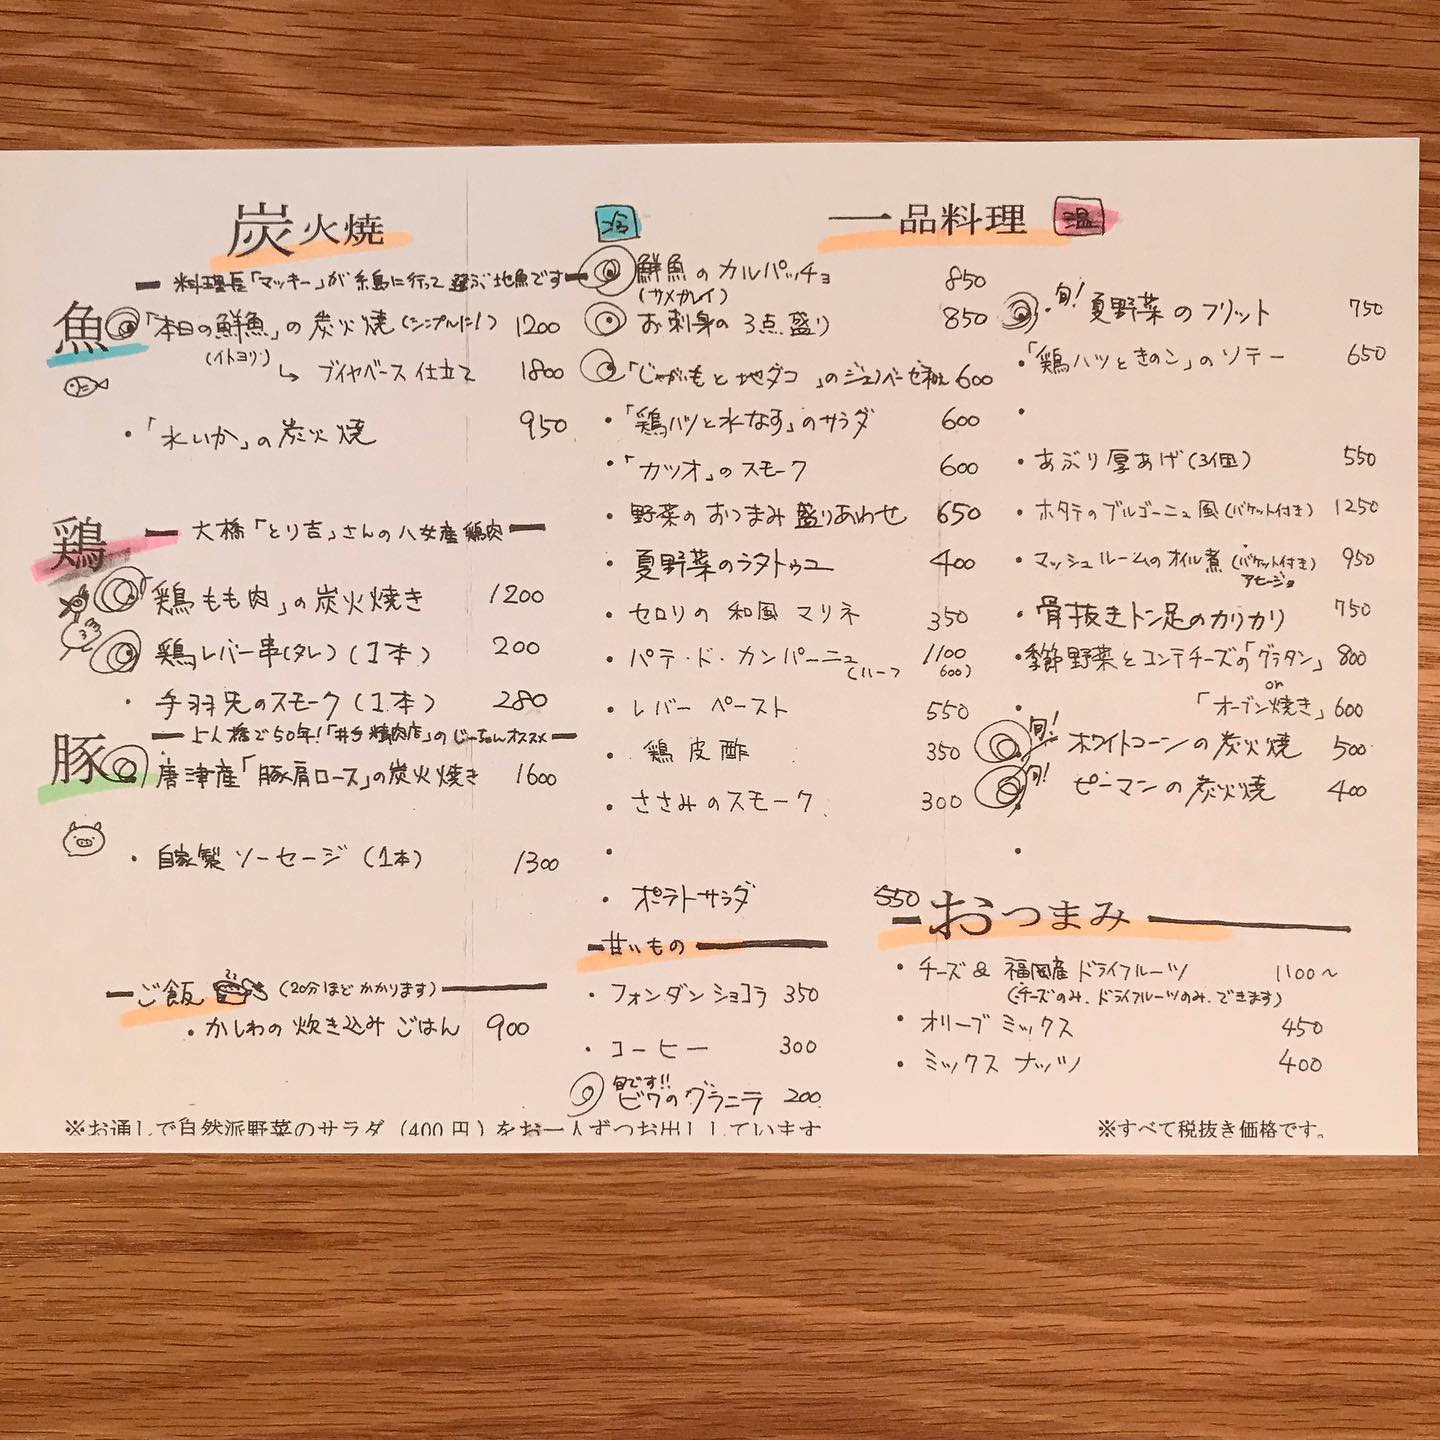 炭火焼
━ 料理長「マッキー」が糸島に行って選ぶ地魚です ━
魚
「本日の鮮魚」の炭火焼(シンプルに!) 1200
(イトヨリ)
↳ ブイヤベース仕立て 1800
・「水いか」の炭火焼 950
鶏 ━ 大橋「とり吉」さんの八女産鶏肉 ━
「鶏もも肉」の炭火焼き 1200
鶏レバー串(タレ)(1本) 200
・手羽先のスモーク(1本) 280
豚
で50年!「精肉店」のじーちゃんオススメ ━
唐津産「豚肩ロース」の炭火焼き 1600
・自家製ソーセージ(1本) 1300
━ ご飯 (20分ほどかかります) ━
・かしわの炊き込みごはん 900
冷
鮮魚のカルパッチョ 850
(サメガレイ)
お刺身の3点盛り 850
「じゃがいもと地ダコ」のジェノベーゼ和え 600
・「鶏ハツと水なす」のサラダ 600
・「カツオ」のスモーク 600
・野菜のおつまみ盛りあわせ 650
・夏野菜のラタトゥユ 400
・セロリの和風マリネ 350
・パテ・ド・カンパーニュ 1100
(ハーフ 600)
・レバーペースト 550
・鶏皮酢 350
・ささみのスモーク 300
・
・ポテトサラダ 550
━ 甘いもの ━
・フォンダンショコラ 350
・コーヒー 300
旬です!!
ビワのグラニテ 200
一品料理 温
旬! 夏野菜のフリット 750
・「鶏ハツときのこ」のソテー 650
・
・あぶり厚あげ(3個) 550
・ホタテのブルゴーニュ風(バケット付き) 1250
・マッシュルームのオイル煮(バケット付き) 950
アヒージョ
・骨抜きトン足のカリカリ 750
・季節野菜とコンテチーズの「グラタン」 800
or
・「オーブン焼き」 600
旬! ホワイトコーンの炭火焼 500
旬! ピーマンの炭火焼 400
・
━ おつまみ ━
・チーズ & 福岡産ドライフルーツ 1100〜
(チーズのみ、ドライフルーツのみ、できます)
・オリーブミックス 450
・ミックスナッツ 400
※お通しで自然派野菜のサラダ(400円)をお一人ずつお出ししています
※すべて税抜き価格です。